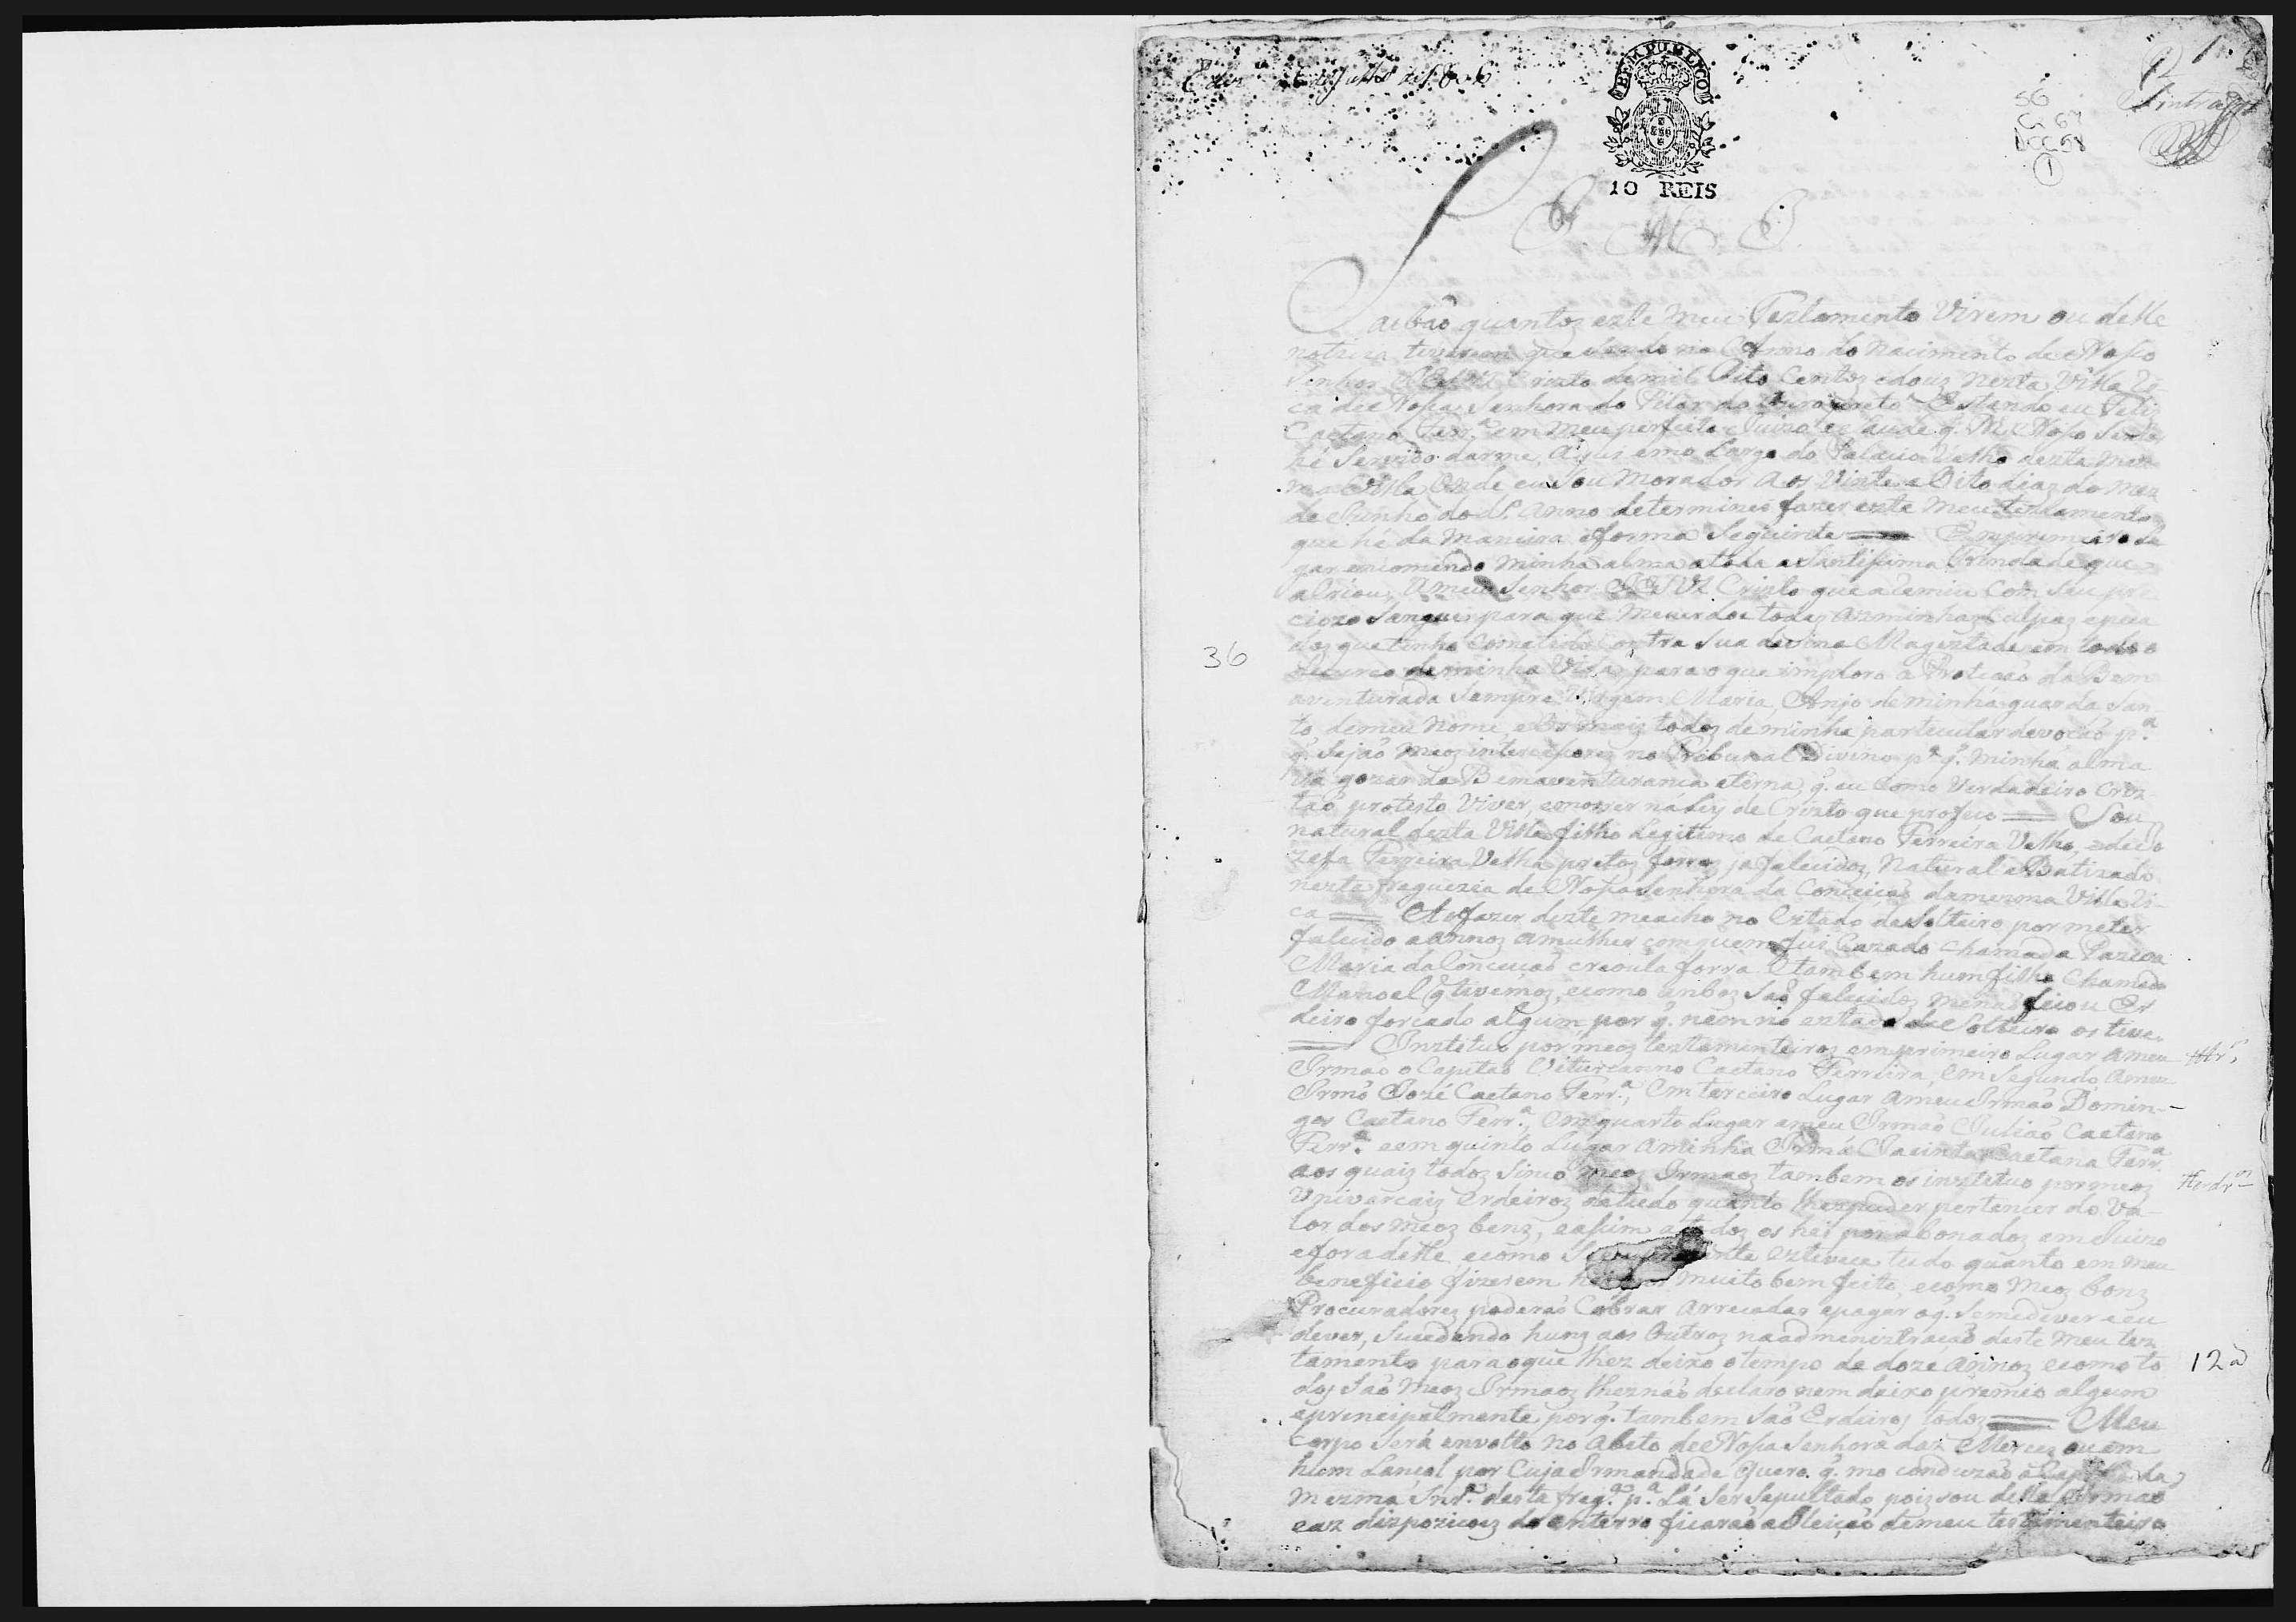 de Julho de 1806
BEM PUBLICO
1
56
G 67
DOC 98
1
10 REIS
J. M. J.
Saibaõ quantoz ezte meu Teztamento Virem ou delle
noticia tiverem que sendo no Anno do Nacimento de Nosso
Senhor JEZUZ Crizto de mil Oito Centoz edouz nezta Villa Ri-
ca de Nossa Senhora do Pilar do Ouro preto Estando eu Feliz
Caetano Ferr.ª em meu perfeito Juizo e saude q. N. Nosso Senhor
hé Servido darme, Aqui emo Largo do Palacio Velho dezta mez
ma Villa Onde eu Sou Morador Aos Vinte e Oito diaz do mez
de Junho do d.º Anno determinei fazer ezte meu teztamento
que hé da maneira eforma Seguinte == Emprimeiro lu
gar encomendo minha alma atoda a Santissima Trindade que
aCriou, A meu Senhor JEZUZ Crizto que aRemiu Com Seu pre
ciozo Sangue para que me perdoe todaz az minhaz Culpaz epeca
doz que tenho Cometido Contra Sua devina Magestade em todo o
decurço de minha Vida, para o que imploro a Proteçaõ da Bem
aventurada Sempre Virgem Maria, Anjo de minha guarda San-
to demeu nome, e Os maiz todoz de minha particular devoçaõ p.ª
q. Sejaõ meoz interceçorez no Tribunal Divino p.ª q. minha alma
Vá gozar da Bemaventurança eterna, q. eu Como Verdadeiro Criz-
taõ protesto Viver, emorrer na Ley de Crizto que profeço == Sou
natural dezta Villa filho Legitimo de Caetano Ferreira Velho, edeJo
zefa Ferreira Velha pretoz forroz ja falecidoz, Natural e Batizado
nezta freguezia de Nossa Senhora da Conceiçaõ damezma Villa Ri-
ca == Ao fazer dezte meacho no Estado de Solteiro por meter
falecido aannoz amulher com quem fui Cazado chamada Pazcoa
Maria da Conceiçaõ creoula forra e tambem hum filho Chamado
Manoel q. tivemoz, ecomo anboz Saõ falecidoz menaõ ficou Er
deiro forçado algum por q. nem no estado de Solteiro os tive
== Instituo por meoz teztamenteiroz emprimeiro Lugar ameu
Irmaõ o Capitaõ Viturianno Caetano Ferreira, em Segundo Ameu
Irmõ Jozé Caetano Ferr.ª, Em terceiro Lugar Ameu Irmaõ Domin-
gos Caetano Ferr.ª, em quarto Lugar ameu Irmaõ Juliaõ Caetano
Ferr.ª eem quinto Lugar Aminha Irmã Jacinta Caetana Ferr.ª
aos quaiz todoz Sinco meoz Irmaoz tambem os instituo por meoz
Univarcaiz Erdeiroz de tudo quanto lhezpuder pertencer do Va-
lor dos meoz benz, eassim atodoz os hei por abonadoz em Juizo
eforadelle, ecomo Se eu prezente estivece tudo quanto em meu
beneficio fizerem muito bem feito, ecomo meoz bonz
Procuradorez poderaõ Cobrar Arrecadar epagar oq. Semedever eeu
dever, Sucedendo hunz aos Outroz naadminiztraçaõ deste meu tez
tamento paraoque lhez deixo otempo de doze annoz ecomo to
dos saõ meoz Irmaoz lheznaõ declaro nem deixo premio algum
eprincipalmente por q. tambem saõ Erdeiroz todoz == Meu
Corpo Será envolto no Abito de Nossa Senhora daz Mercez ou em
hum Lançol por Cuja Irmandade Quero q. me conduzaõ a Capella da
mezma Snr.ª desta freg.ª p.ª Lá Ser Sepultado poiz sou della Irmaõ
eaz dizpoziçoez do enterro ficaraõ a Eleiçaõ demeu testamenteiro
36
Herdr.os
12 a